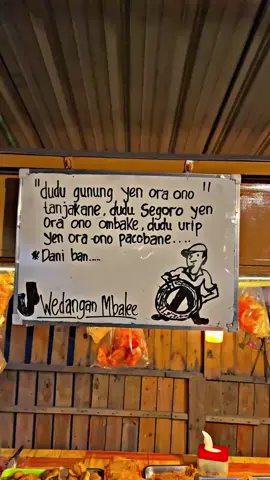 "dudu gunung yen ora ono "
tanjakane, dudu Segoro yen
ora ono ombake, dudu urip
yen ora ono pacobane....
* Dani ban.....
Wedangan Mbalee